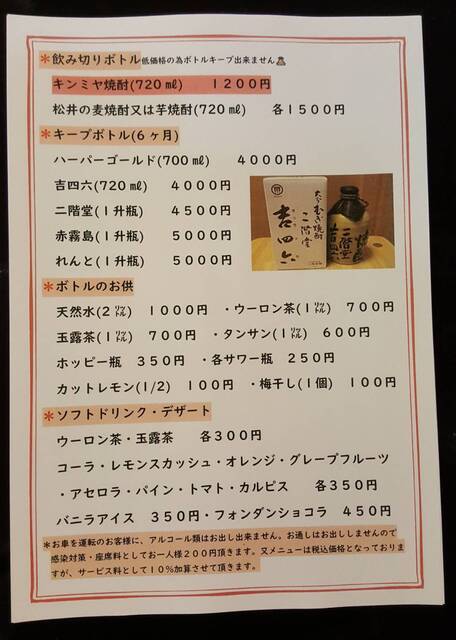 *飲み切りボトル低価格の為ボトルキープ出来ません
キンミヤ焼酎(720㎖) 1200円
松井の麦焼酎又は芋焼酎(720㎖) 各1500円
*キープボトル(6ヶ月)
ハーパーゴールド(700㎖) 4000円
吉四六(720㎖) 4000円
二階堂(1升瓶) 4500円
赤霧島(1升瓶) 5000円
れんと(1升瓶) 5000円
大分むぎ焼酎
二階堂
吉四六
*ボトルのお供
天然水(2㍑) 1000円 ・ウーロン茶(1㍑) 700円
玉露茶(1㍑) 700円 ・タンサン(1㍑) 600円
ホッピー瓶 350円 ・各サワー瓶 250円
カットレモン(1/2) 100円 ・梅干し(1個) 100円
*ソフトドリンク・デザート
ウーロン茶・玉露茶 各300円
コーラ・レモンスカッシュ・オレンジ・グレープフルーツ
・アセロラ・パイン・トマト・カルピス 各350円
バニラアイス 350円・フォンダンショコラ 450円
*お車を運転のお客様に、アルコール類はお出し出来ません。お通しはお出ししませんので
感染対策・座席料としてお一人様200円頂きます。又メニューは税込価格となっておりま
すが、サービス料として10%加算させて頂きます。